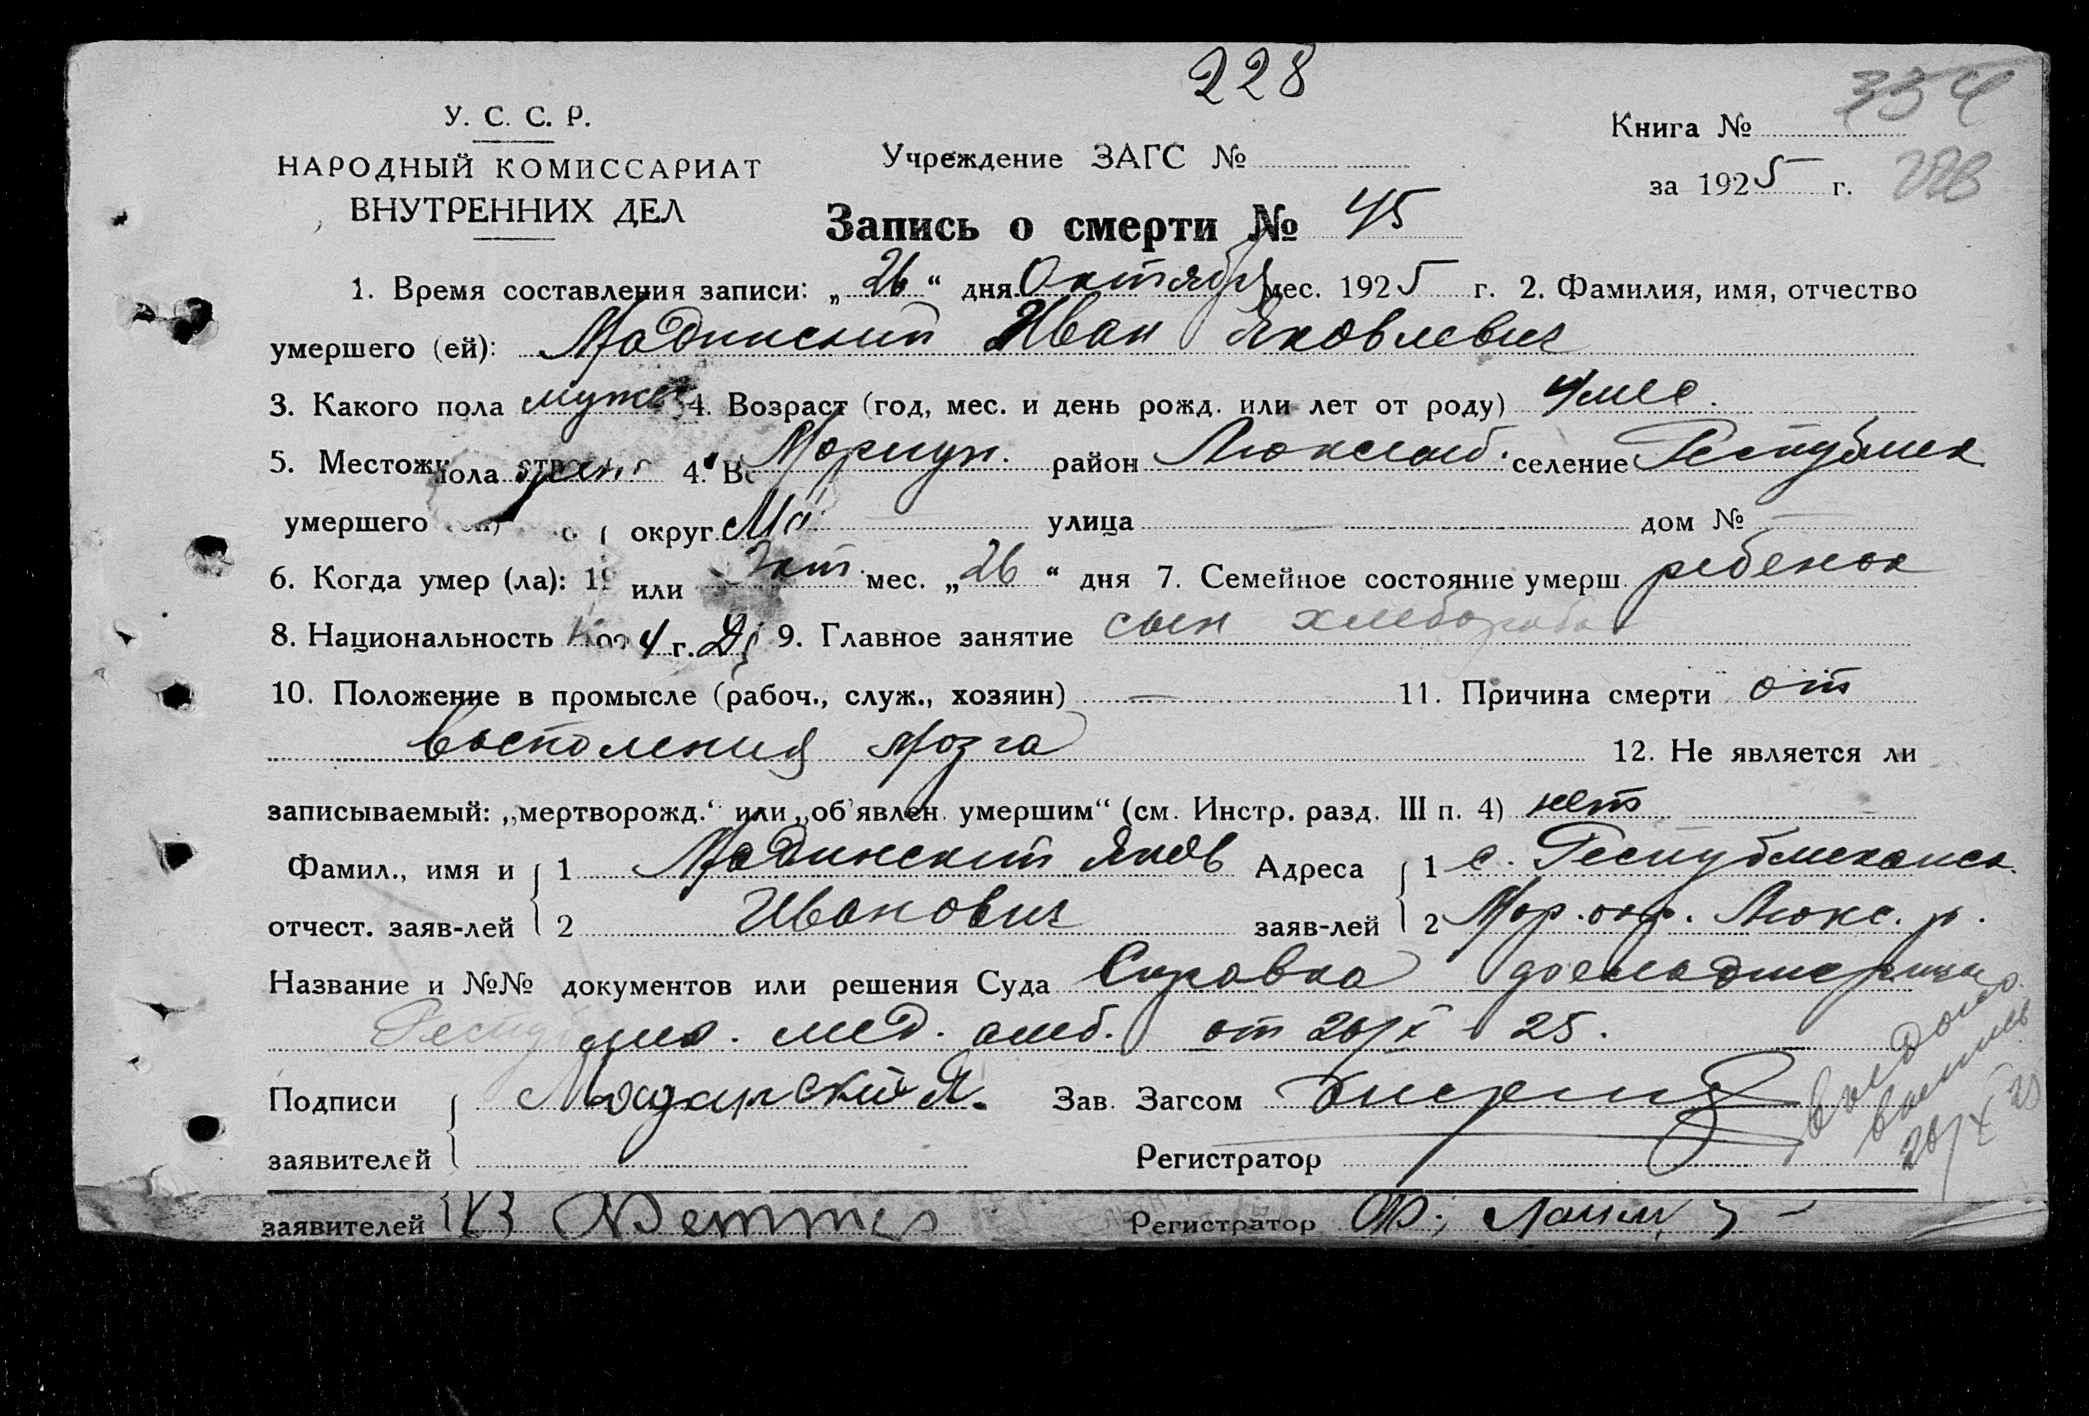 228
334
У. С. С. Р.
НАРОДНЫЙ КОМИССАРИАТ
ВНУТРЕННИХ ДЕЛ
Учреждение ЗАГС №
Книга №
за 1925 г. 228
Запись о смерти № 45
1. Время составления записи: „26“ дня Октября мес. 1925 г. 2. Фамилия, имя, отчество
умершего (ей): Мадинский Иван Яковлевич
3. Какого пола мужс 4. Возраст (год, мес. и день рожд. или лет от роду) 4 мес.
5. Местож пола 4. Во Мариуп. район Люксемб. селение Республик
умершего округ Ма улица — дом № —
6. Когда умер (ла): 19 или Окт. мес. „26“ дня 7. Семейное состояние умерш. ребенок
8. Национальность 4 г. 9. Главное занятие сын хлебороба
10. Положение в промысле (рабоч., служ., хозяин) — 11. Причина смерти от
восполения мозга 12. Не является ли
записываемый: „мертворожд.“ или „об'явлен умершим“ (см. Инстр. разд. III п. 4) нет
Фамил., имя и 1 Мадинский Яков Адреса 1 с. Республиканск.
отчест. заяв-лей 2 Иванович заяв-лей 2 Мар. окр. Люкс. р.
Название и №№ документов или решения Суда Справка
Республик. мед. амб. от 26/X 25.
Подписи Мадинский Я. Зав. Загсом
заявителей Регистратор
выдана
выпись
26/X 25
заявителей Регистратор Ф.